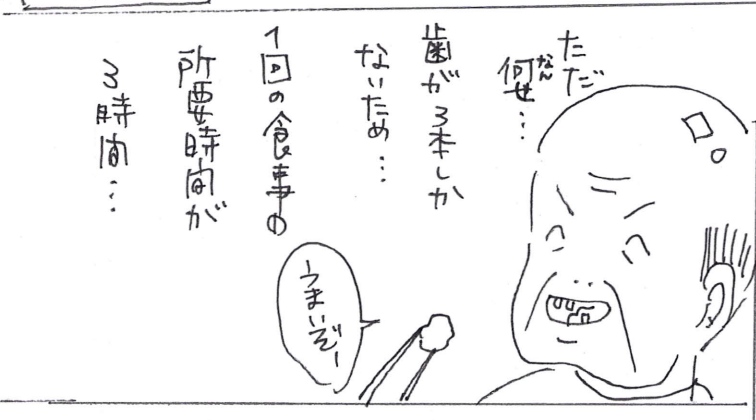 ただ
何せ…
なん
歯が3本しか
ないため…
1回の食事の
所要時間が
3時間…
うまいぞー